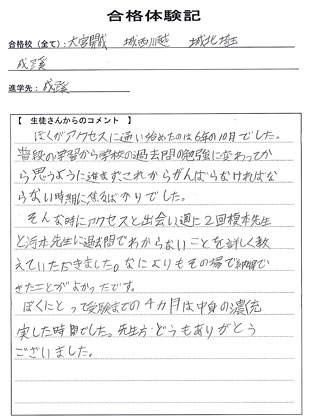 合格体験記
合格校（全て）：大宮開成　城西川越　城北埼玉
成蹊
進学先：成蹊
【　生徒さんからのコメント　】
ぼくがアクセスに通い始めたのは6年の10月でした。
普段の学習から学校の過去問の勉強に変わってか
ら思うように進まず、これからがんばらなければな
らない時期に焦るばかりでした。
そんな時にアクセスと出会い週に2回榎本先生
と河本先生に過去問でわからないことを詳しく教
えていただきました。なによりもその場で納得で
きたことがよかったです。
ぼくにとって受験までの4カ月は中身の濃い充
実した時間でした。先生方、どうもありがとう
ございました。